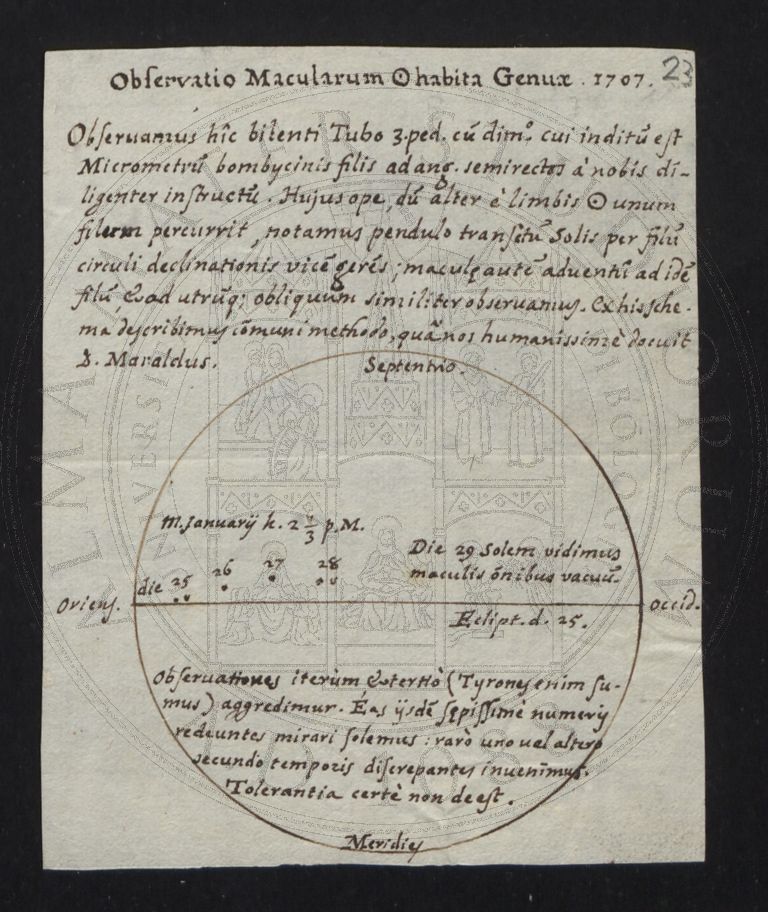 23
Obſervatio Macularum ☉ habita Genuæ. 1707.
Obſeruamus hîc bilenti Tubo 3.ped. cũ dim.º cui inditũ eſt
Micrometrũ bombycinis filis ad ang. semirectos à nobis di-
ligenter inſtructũ. Hujus ope, dũ alter è limbis ☉ unum
filum percurrit, notamus pendulo tranſitũ Solis per filũ
circuli declinationis vicẽ gerẽs; maculę autẽ aduentũ ad idẽ
filũ, & ad utrũq; obliquum similiter observamus. Ex his ſche-
ma deſcribimus cõmuni methodo, quã nos humanissimè docuit
D. Maraldus.
Septentrio.
M. Januarij h. 2 2/3 p.M.
Die 29 Solem vidimus
maculis õnibus vacuũ.
die 25 26 27 28
Oriens. Occid.
Eclipt. d. 25.
Obſervationes iterùm & tertiò (Tyrones enim ſu-
mus) aggredimur. Eas ijsdẽ ſępiſſimè numeris
redeuntes mirari ſolemus: rarò uno vel altero
secundo temporis diſcrepantes invenimus.
Tolerantia certè non deest.
Meridies
ALMA MATER STUDIORUM